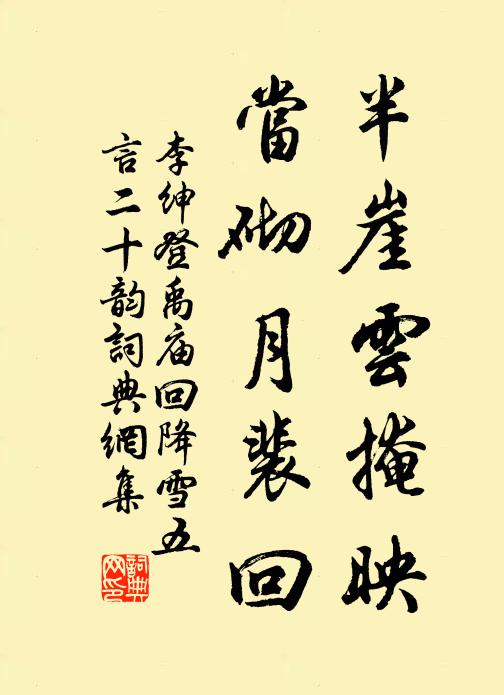 半崖雲掩映
當砌月裴回
李紳登禹庙回降雪五
言二十韵詞典網集
詞典
网印